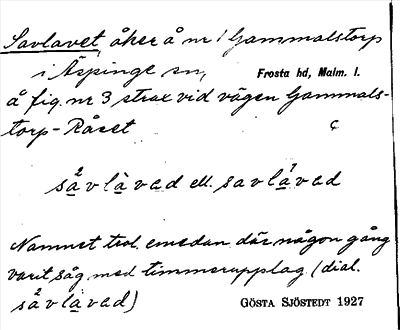 Savlavet, åker å nr 1 Gammalstorp
i Äspinge sn, Frosta hd, Malm. l.
å fig. nr 3 strax vid vägen Gammals-
torp - Råset
ç
så²vlàvad ell. savlá¹vad
Namnet trol. emedan där någon gång
varit såg med timmerupplag (dial.
så²vlàvad) GÖSTA SJÖSTEDT 1927